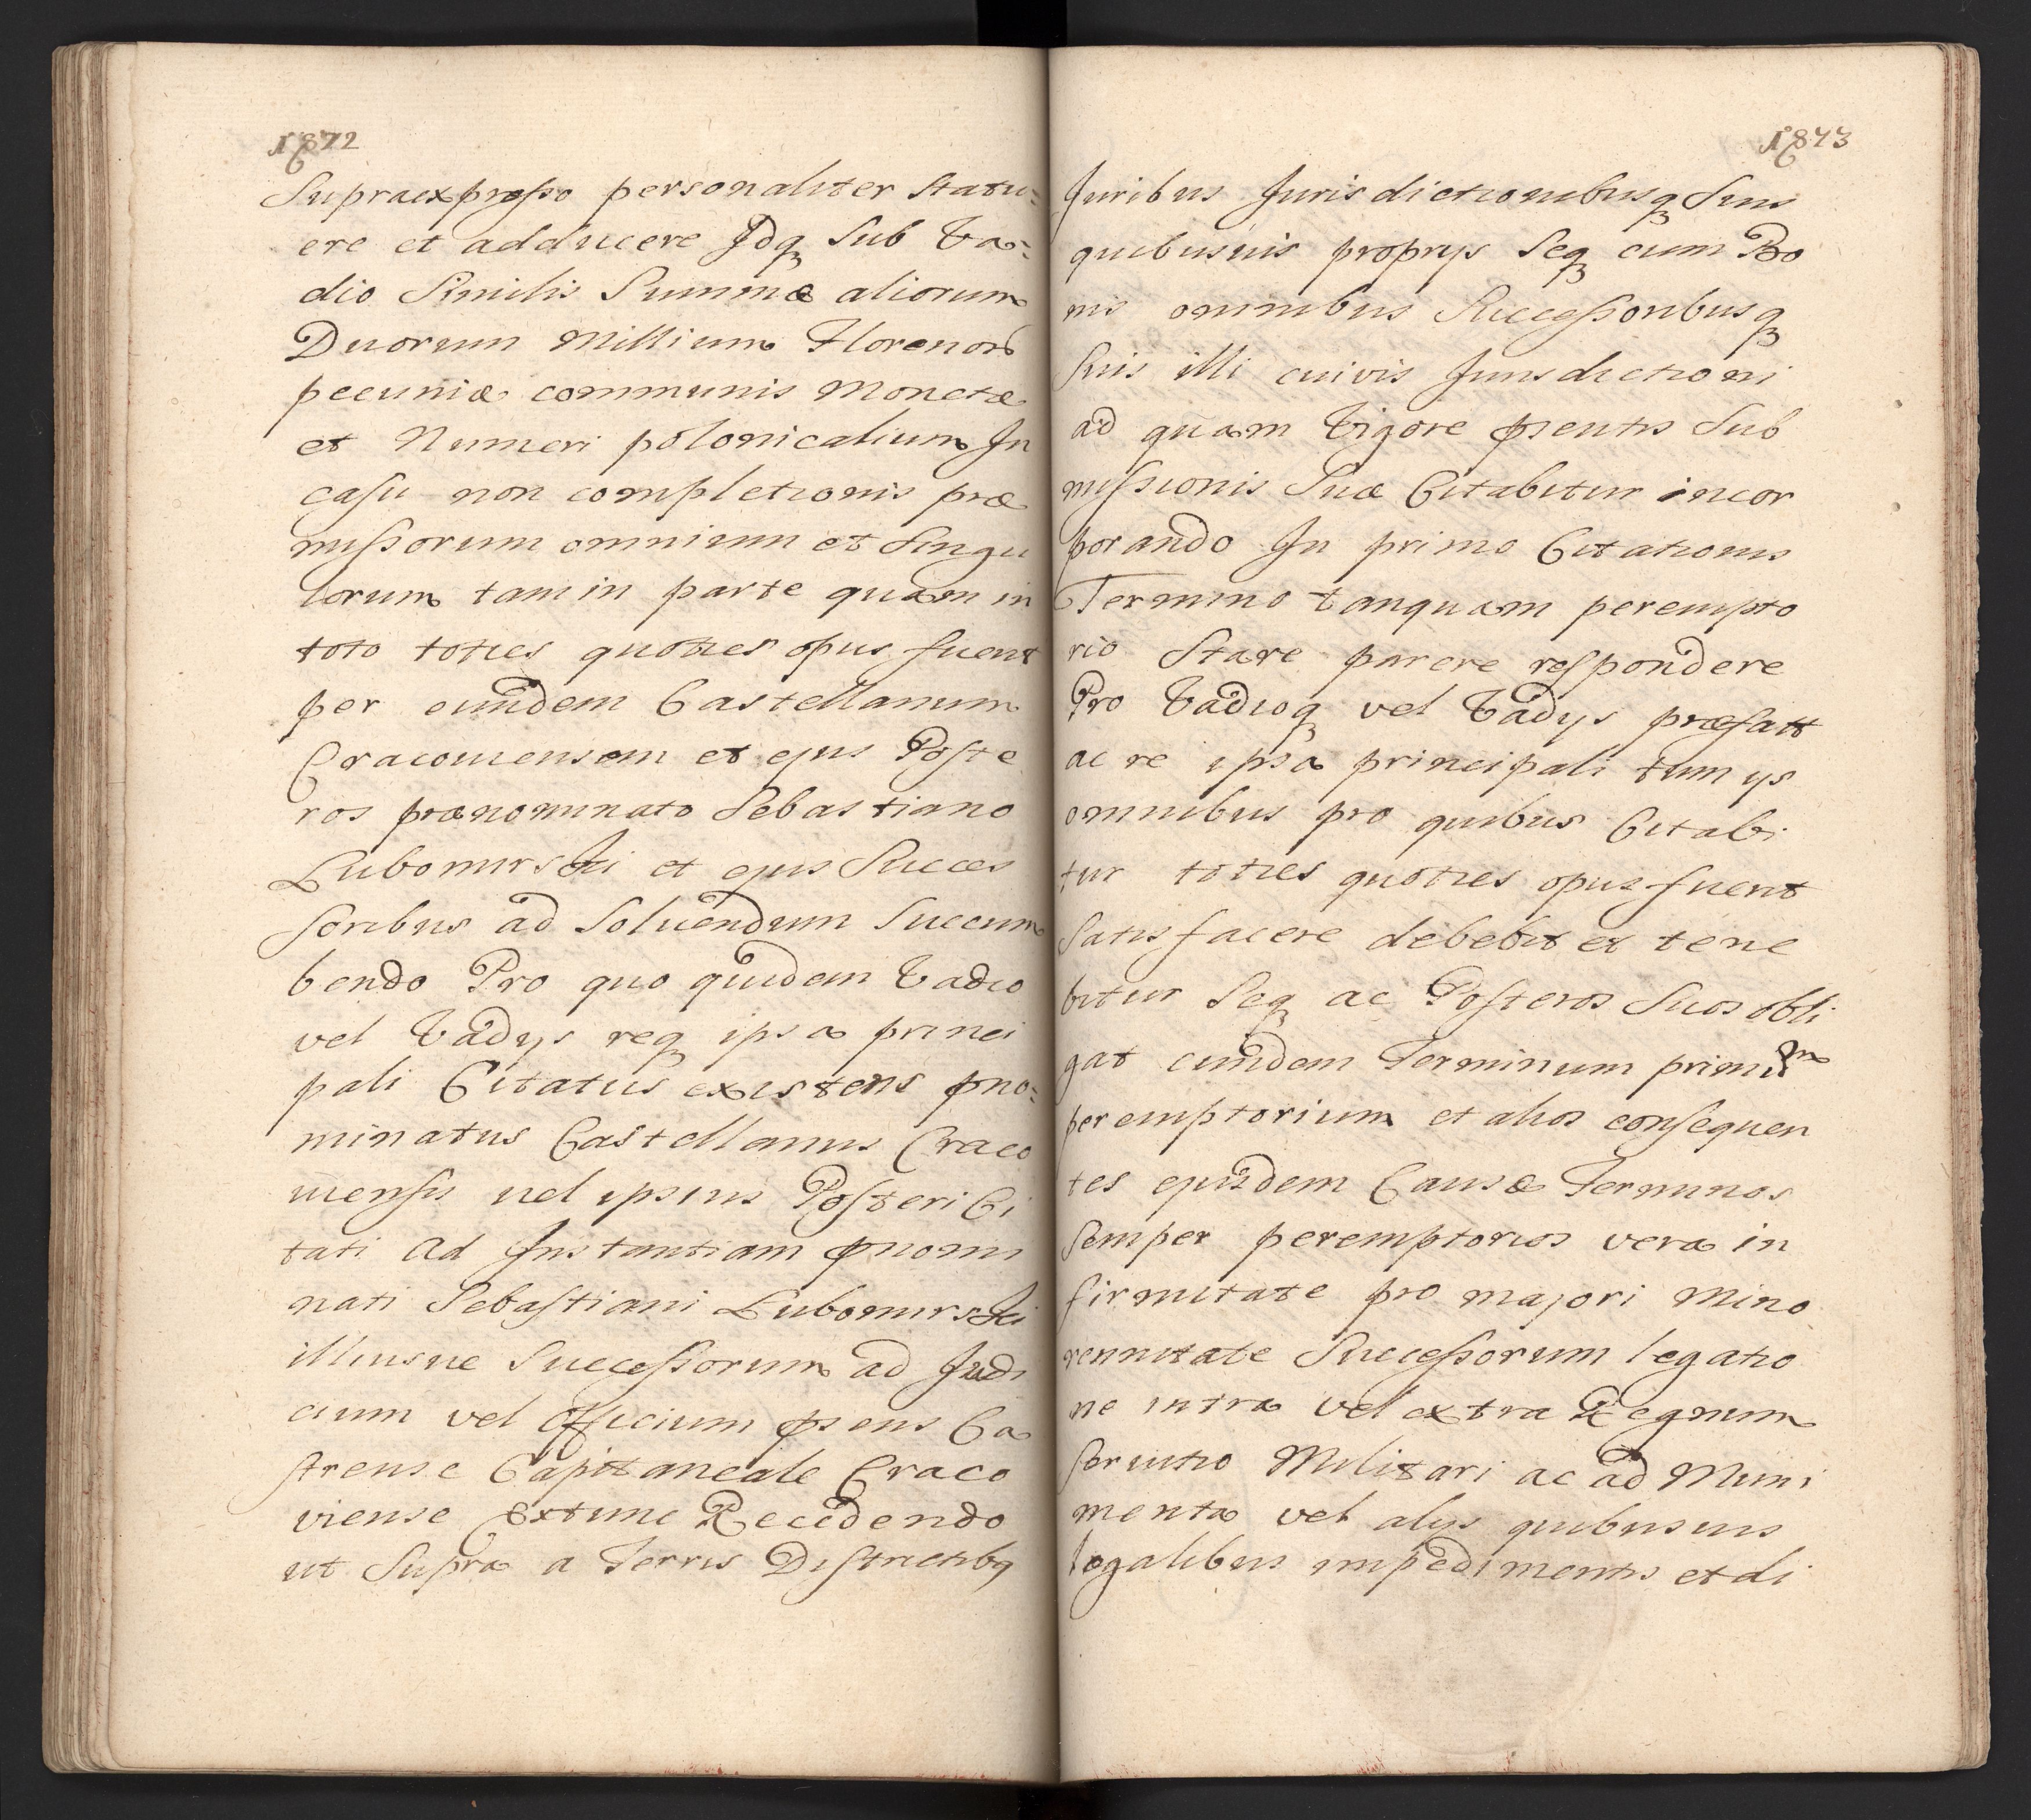 1872
Supraexpresso personaliter statu=
ere et adducere Idq₃ Sub Va=
dio Similis Summæ aliorum
Duorum Millium Florenor
pecuniæ communis Monetæ
et Numeri polonicalium In
casu non completionis præ
missorum omnium et Singu
lorum tam in parte quam in
toto toties quoties opus fuerit
per eundem Castellanum
Cracoviensem et ejus Poste
ros prænominato Sebastiano
Lubomirski et ejus Succes
soribus ad Solvendum Succum
bendo Pro quo quidem Vadio
vel Vadys req₃ ipsa princi
pali Citatus existens pno=
minatus Castellanus Craco
viensis vel ipsius Posteri Ci
tati ad Instantiam pnomi
nati Sebastiani Lubomirski
illiusve Successorum ad Judi
cium vel Officium psens Ca
strense Capitaneale Craco
viense Extunc Recedendo
ut Supra a Terris Districtibq
1873
Juribus Jurisdictionibusq₃ Suis
quibusvis proprys Seq₃ cum Bo
nis omnibus Successoribusq₃
Suis illi cuivis Jurisdictioni
ad quam Vigore psentis Sub
missionis Suæ Citabitur incor
porando In primo Citationis
Termino tanquam perempto
rio Stare parere respondere
Pro Vadioq₃ vel Vadys præfatt
ac re ipsa principali tum ys
omnibus pro quibus Citabi
tur toties quoties opus fuerit
Satisfacere debebit et tene
bitur Seq₃ ac Posteros Suos obli
gat eundem Terminum primum
peremptorium et alios consequen
tes ejusdem Causæ Terminos
Semper peremptorios vera in
firmitate pro majori mino
rennitate Successorum legatio
ne intra vel extra Regnum
Servitio Militari ac ad Muni
menta vel alys quibusvis
legalibus impedimentis et di